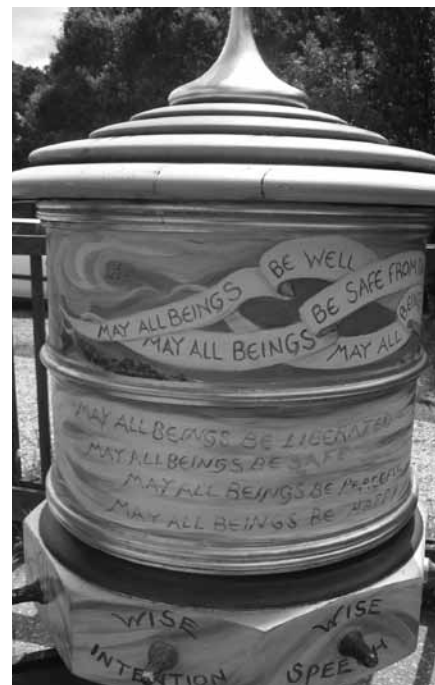 MAY ALL BEINGS BE WELL
MAY ALL BEINGS BE SAFE FROM
MAY ALL
MAY ALL BEINGS BE LIBERATED
MAY ALL BEINGS BE SAFE
MAY ALL BEINGS BE
MAY ALL BEINGS BE HAPPY
WISE
INTENTION
WISE
SPEECH